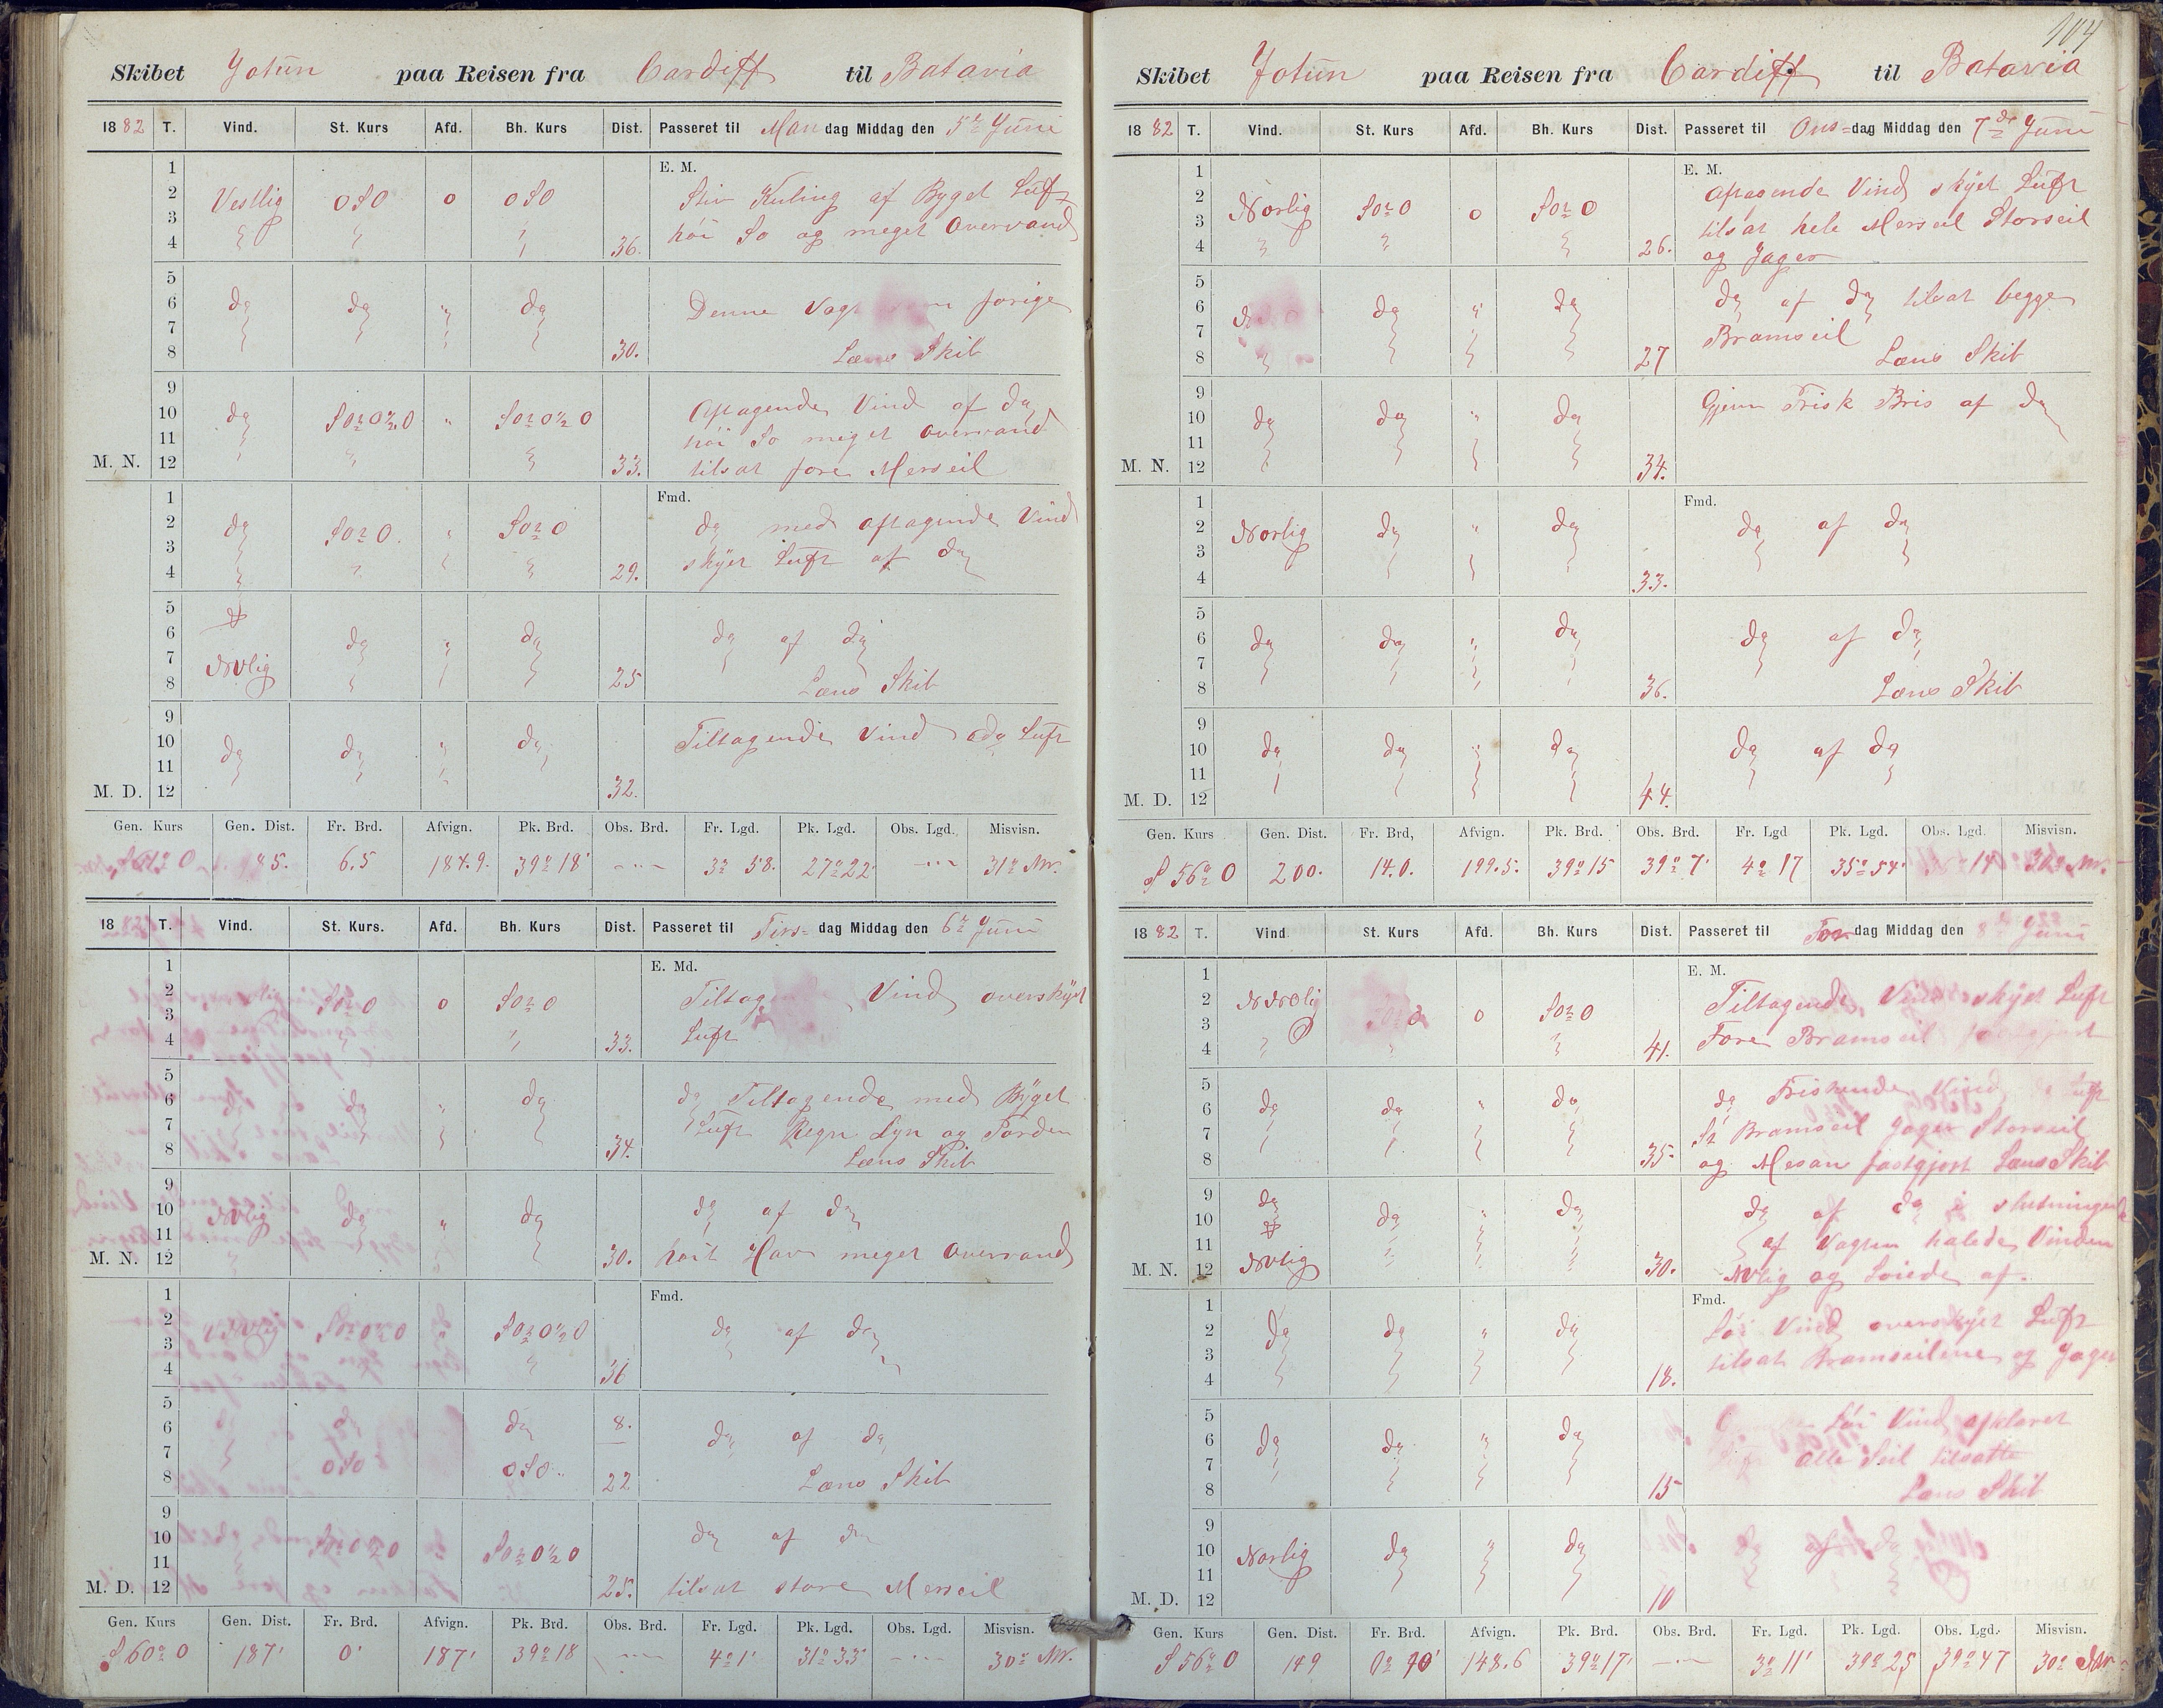 104
Skibet Jotun paa Reisen fra Cardiff til Batavia
1882 T. Vind. St. Kurs Afd. Bh. Kurs Dist. Passeret til Mandag Middag den 5te Juni
E. M.
1
2 Vestlig OSO 0 OSO Stiv Kuling af Byget Luft
3 høi Sø og meget Overvand
4 36.
5
6 do do " do Denne Vagt forige
7
8 30. Læns Skib
9
10 do SOtO½O " SOtO½O Aftagende Vind af do
11 høi Sø meget overvand
M. N. 12 33. tilsat fore Merseil
Fmd.
1
2 do SOtO. " SOtO do med aftagende Vind
3 skyet Luft af do
4 29.
5
6 do " do do af do
7 NVlig
8 25 Læns Skib
9
10 do do " do Tiltagende Vind do Luft
11
M. D. 12 32.
Gen. Kurs Gen. Dist. Fr. Brd. Afvign. Pk. Brd. Obs. Brd. Fr. Lgd. Pk. Lgd. Obs. Lgd. Misvisn.
6.5 184.9. 39° 18' — 3° 58. 27° 22' — 31° NV.
18 T. Vind. St. Kurs. Afd. Bh. Kurs Dist. Passeret til Tirsdag Middag den 6te Juni
E. Md.
1
2 SOtO 0 SOtO Vind overskyet
3
4 33. Luft
5
6 do " do do Tiltagende med Byget
7 Luft Regn Lyn og Torden
8 34. Læns Skib
9
10 NVlig do " do do af do
11
M. N. 12 30. høit Hav meget Overvand
Fmd.
1
2 SOtO½O SOtO½O do af do
3
4 36
5
6 do 8. do af do
7
8 OSO OSO 22 Læns Skib
9
10 SOtO½O SOtO½O do af do
11
M. D. 12 25. tilsat store Merseil
Gen. Kurs Gen. Dist. Fr. Brd. Afvign. Pk. Brd. Obs. Brd. Fr. Lgd. Pk. Lgd. Obs. Lgd. Misvisn.
S 60° O 187' 0' 187' 39° 18 — 4° 1' 31° 33' — 30° NV.
Skibet Jotun paa Reisen fra Cardiff til Batavia
1882 T. Vind. St. Kurs Afd. Bh. Kurs Dist. Passeret til Onsdag Middag den 7de Juni
E. M.
1 Aftagende Vind skyet Luft
2 Norlig SOtO 0 SOtO
3 tilsat hele Merseil Storseil
4 26. og Jager
5
6 do " do do af do tilsat begge
7 Bramseil
8 27 Læns Skib
9
10 do do " do Gjevn Frisk Bris af do
11
M. N. 12 34.
Fmd.
1
2 Norlig do " do do af do
3
4 33.
5
6 do do " do do af do
7
8 36. Læns Skib
9
10 do do " do do af do
11
M. D. 12 44.
Gen. Kurs Gen. Dist. Fr. Brd, Afvign. Pk. Brd. Obs. Brd. Fr. Lgd Pk. Lgd. Obs. Lgd. Misvisn.
S 56° O 200. 14.0. 199.5. 39° 15 39° 7' 4° 17 35° 54' 30° NV.
1882 T. Vind St. Kurs Afd. Bh. Kurs Dist. Passeret til Tordag Middag den 8de Juni
E. M.
1
2 NNOlig 0 SOtO Tiltagende Vind skyet Luft
3 Fore Bramseil
4 41.
5
6 do do " do do Friskende Vind do Luft
7 St Bramseil Jager Storseil
8 35 og Mesan fastgjort Læns Skib
9 do
10 do " do do af do i slutningen
11 af Vagten halede Vinden
M. N. 12 NVlig 30. NVlig og Løiede af.
Fmd.
1
2 do do " do Løi Vind overskyet Luft
3 tilsat Bramseilene og Jager
4 18.
5 Løi Vind afklaret
6 do do " do
7 alle Seil tilsatte
8 15 Læns Skib
9
10 Norlig do " do do af do
11
M. D. 12 10
Gen. Kurs Gen. Dist. Fr. Brd. Afvign. Pk. Brd. Obs. Brd. Fr. Lgd. Pk. Lgd. Obs. Lgd. Misvisn.
S 56° O 149 148.6 39° 17' — 3° 11' 39° 25 39° 47 30° NV